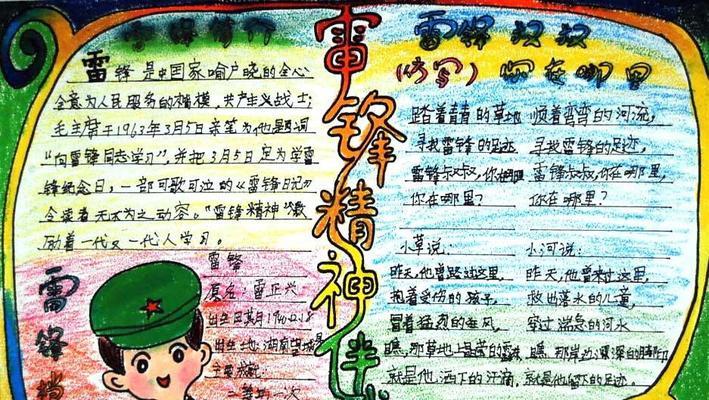 雷锋简介
雷锋是中国家喻户晓的全心
全意为人民服务的楷模，共产主义战士；
毛主席于1963年3月5日亲笔为他题词
“向雷锋同志学习”，并把3月5日定为学雷
锋纪念日，一部可歌可泣的《雷锋日记》
令读者无不为之动容。“雷锋精神”激
励着一代又一代人学习。
雷锋
原名：雷正兴
出生日期：1940.12.18
出生地：湖南望城县
二等功一次
雷锋档
雷锋精神
雷锋叔叔
（仿写） 你在哪里
踏着青青的草地 顺着弯弯的河流，
寻找雷锋的足迹， 寻找雷锋的足迹，
雷锋叔叔，你在哪里 雷锋叔叔，你在哪里，
你在哪里？ 你在哪里？
小草说： 小河说：
昨天，他曾路过这里， 昨天，他曾来过这里，
抱着受伤的孩子， 救出落水的儿童，
冒着猛烈的狂风， 穿过湍急的河水
瞧，那草地上晶莹的露珠 瞧，那岸边深深的脚印
就是他洒下的汗滴， 就是他留下的足迹。